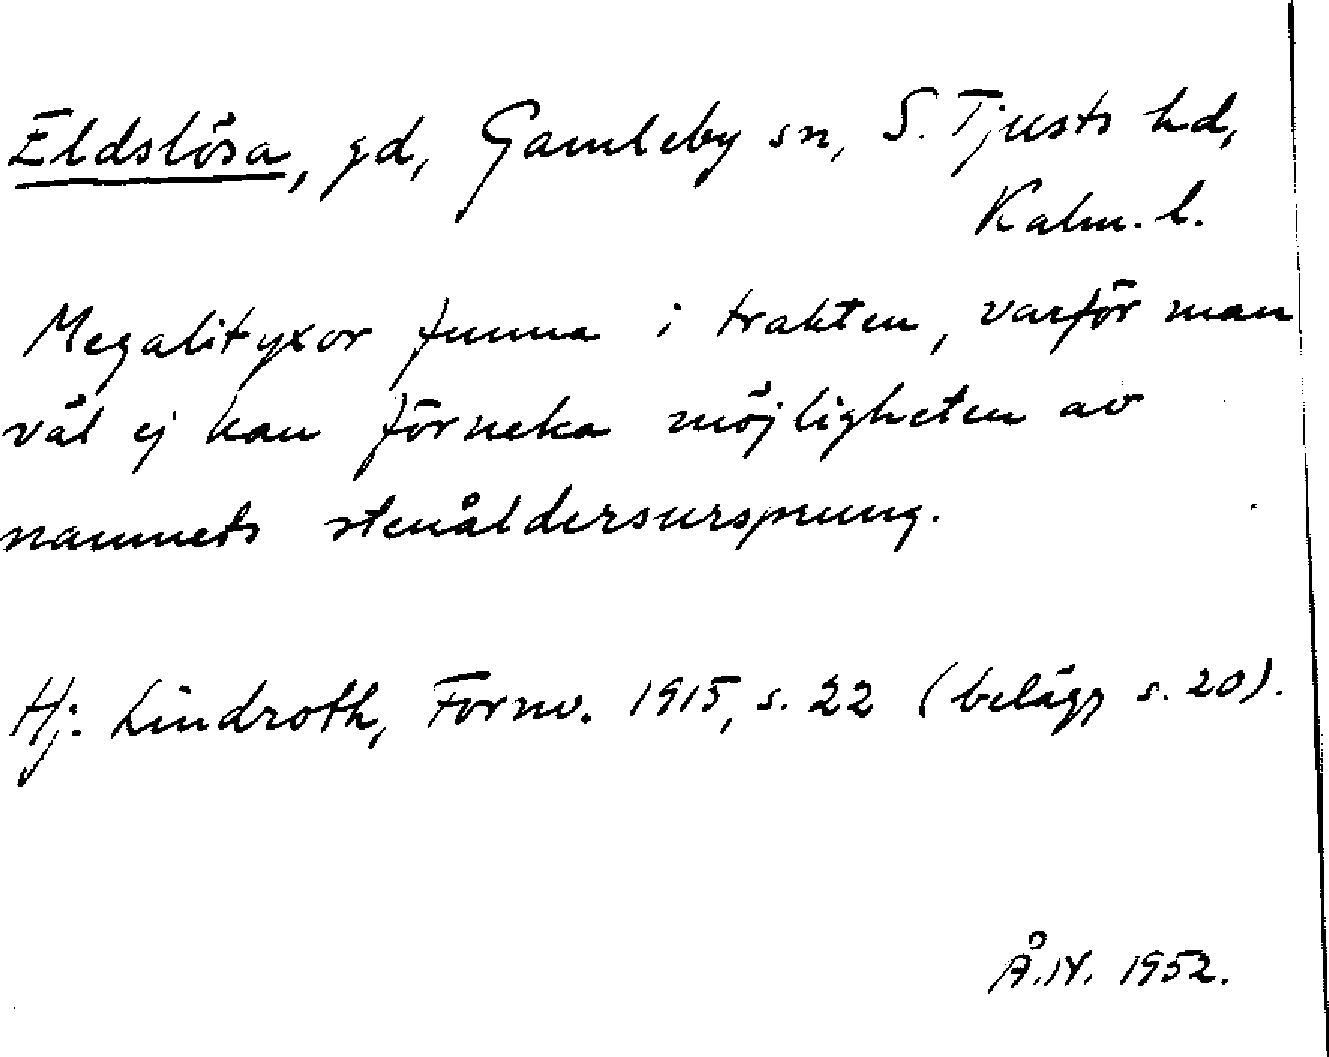 Eldslösa, gd, Gamleby sn, S. Tjusts hd,
Kalm. l.
Megalityxor funna i trakten, varför man
väl ej kan förneka möjligheten av
namnets stenåldersursprung.
Hj. Lindroth, Fornv. 1915, s. 22 (belägg s. 20).
Å.N. 1952.